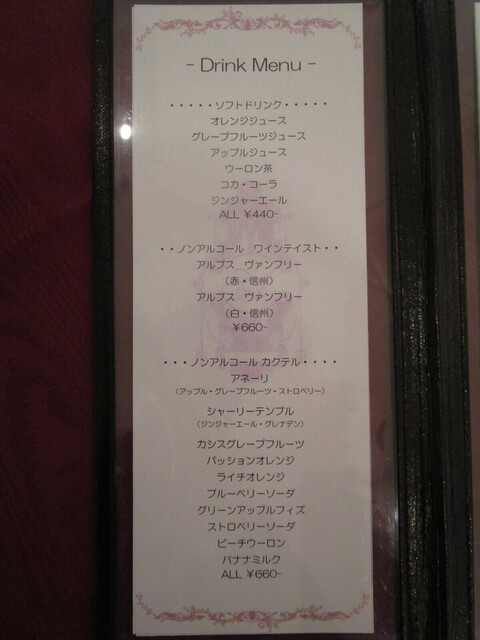 - Drink Menu -
・・・・・ソフトドリンク・・・・・
オレンジジュース
グレープフルーツジュース
アップルジュース
ウーロン茶
コカ・コーラ
ジンジャーエール
ALL ¥440-
・・ノンアルコール　ワインテイスト・・
アルプス　ヴァンフリー
（赤・信州）
アルプス　ヴァンフリー
（白・信州）
¥660-
・・・ノンアルコール カクテル・・・・
アネーリ
（アップル・グレープフルーツ・ストロベリー）
シャーリーテンプル
（ジンジャーエール・グレナデン）
カシスグレープフルーツ
パッションオレンジ
ライチオレンジ
ブルーベリーソーダ
グリーンアップルフィズ
ストロベリーソーダ
ピーチウーロン
バナナミルク
ALL ¥660-